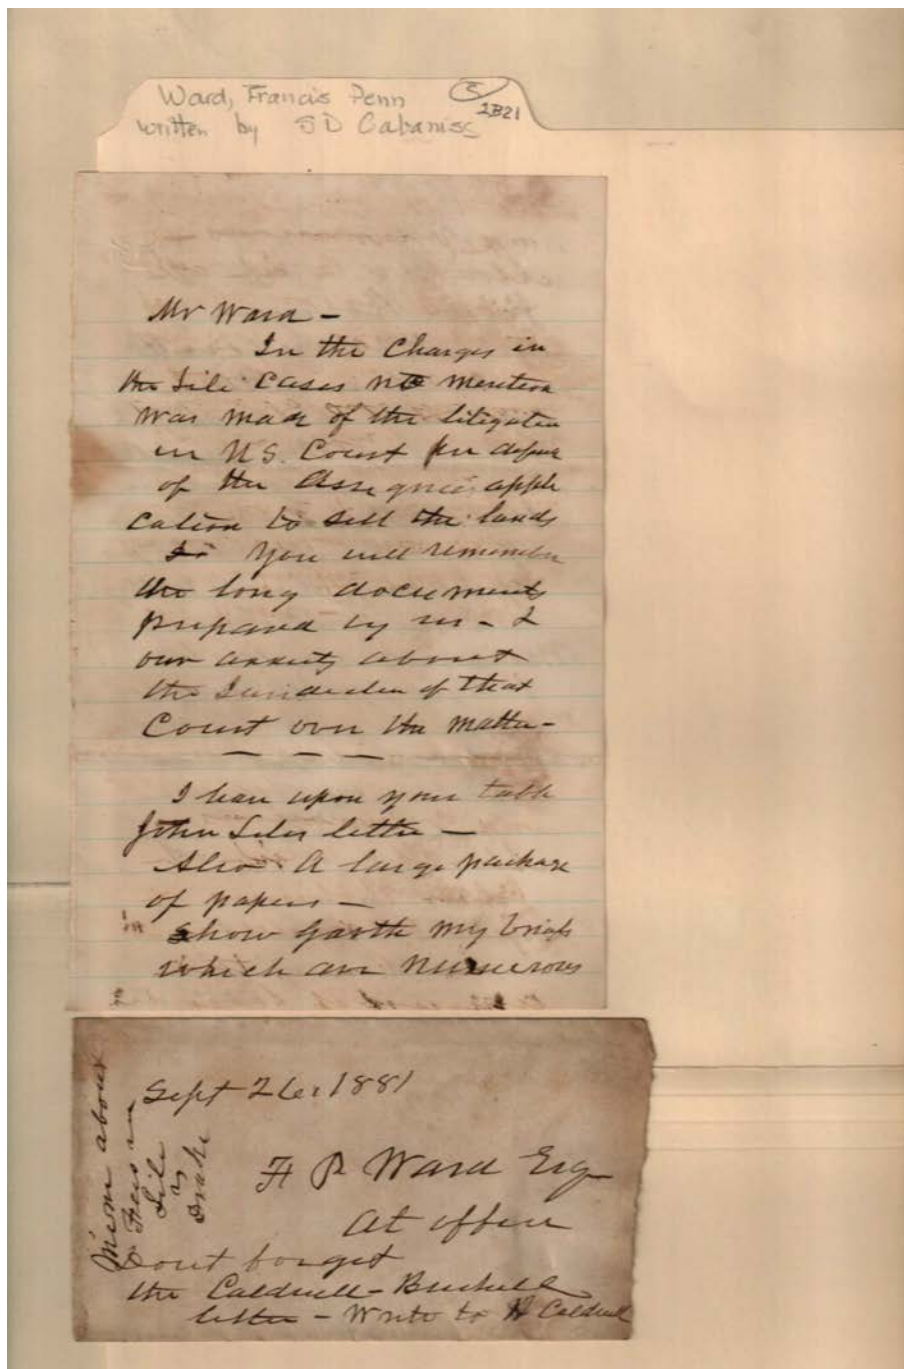 Ward, Francis Penn
written by S D Cabaniss
5
2B21
Mr Ward –
In the Charges in
the Sile Cases no mention
was made of the litigation
in U.S. Court
of the Assignees appli
cation to sell the lands
You will remember
the long documents
prepared by us – &
our anxiety about
the Jurisdiction of that
Court over the matter –
— — —
I leave upon your table
John Siles letter –
Also A large package
of papers –
Show Garth my briefs
which are numerous
Sept 26. 1881
F P Ward Esq
At office
Dont forget
the Caldwell – 
letter – Write to Caldwell
Mem about
Fees in
Sile
vs
Drake